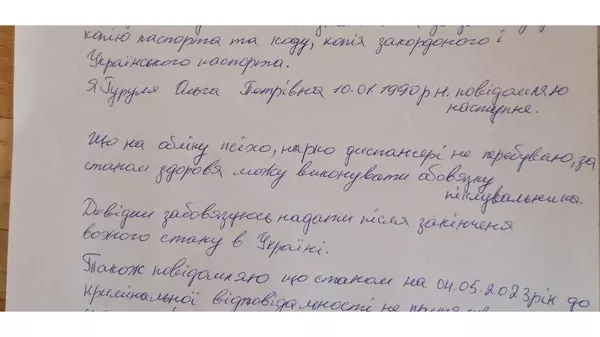 копію паспорта та коду, копія закордоного і
Українського паспорта.
Я Гуруля Ольга Петрівна 10.01.1990 р.н. повідомляю
наступне.
Що на обліку псіхо, нарко диспансері не перебуваю, за
станом здоровя можу виконувати обовязку
піклувальника.
Довідки забовязуюсь надати після закінченя
вожного стану в Україні.
Також повідомляю що станом на 04.05.2023рік до
кримінальної відповідальності не